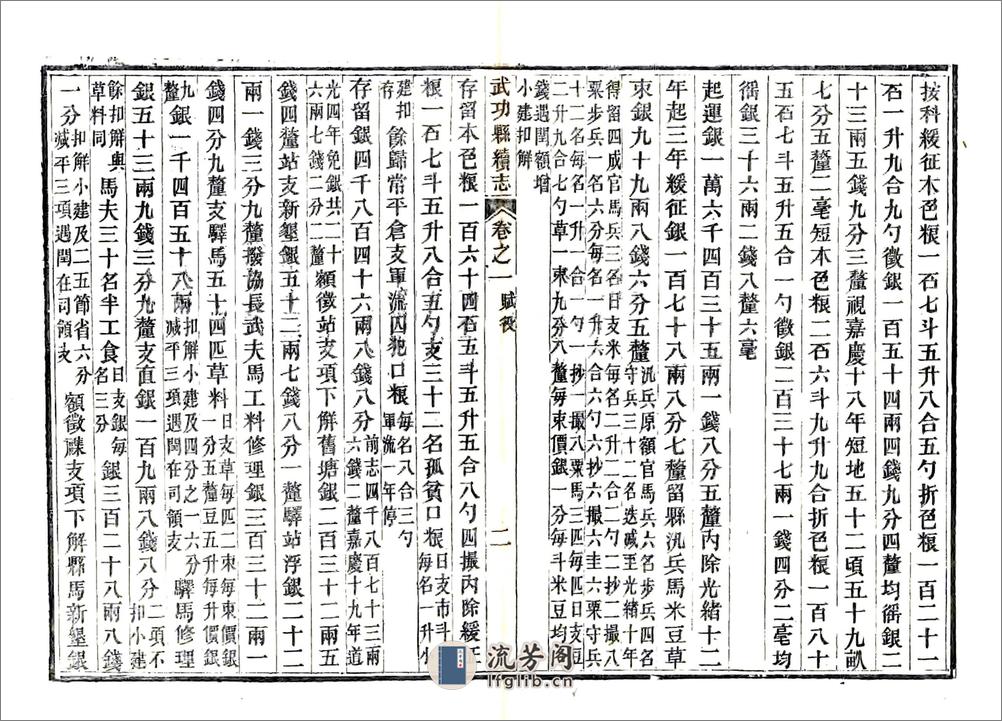 按科緩征本色粮一石七斗五升八合五勺折色粮一百二十一
石一升九合九勺徵銀一百五十四兩四錢九分四釐均徭銀二
十三兩五錢九分三釐視嘉慶十八年短地五十二頃五十九畝
七分五釐二毫短本色粮二石六斗九升九合折色粮一百八十
五石七斗五升五合一勺徵銀二百三十七兩一錢四分二毫均
徭銀三十六兩二錢八釐六毫
起運銀一萬六千四百三十五兩一錢八分五釐內除光緒十二
年起三年緩征銀一百七十八兩八分七釐留縣汛兵馬米豆草
束銀九十九兩八錢六分五釐汛兵原額官馬兵六名步兵四名
守兵三十二名迭減至光緒十年
得留四成官馬兵三名日支米每名八合三勺
粟步兵一名六分每名一升六合六勺六抄六撮六圭六粟守兵
十二名每名一升 合一勺一抄一撮八粟馬三四每四日支豆
二升九合七勺草一束九分八釐每束價銀一分每斗米豆均
錢遇閏額增
小建扣解
武功縣續志 卷之一 賦役 二
存留本色粮一百六十四石五斗五升五合八勺四撮內除緩征
粮一石七斗五升八合五勺支三十二名孤貧口粮日支市斗
每名一升小
建扣 餘歸常平倉支軍流囚犯口粮每名八合三勺
軍流一年停
存留銀四千八百四十六兩八錢八分前志四千八百七十三兩
六錢二釐嘉慶十九年道
光四年免銀共二十
六兩七錢二分二釐額徵站支項下解舊塘銀二百三十二兩五
錢四釐站支新墾銀五十二兩七錢八分一釐驛站浮銀二十二
兩一錢三分九釐撥協長武夫馬工料修理銀三百三十二兩一
錢四分九釐支驛馬五十四匹草料日支草每匹二束每束價銀
一分五釐豆五升每升價銀
九釐銀一千四百五十八兩扣解小建及四分之一六分
減平三項遇閏在司領支驛馬修理
銀五十三兩九錢三分九釐支直銀一百九兩八錢八分二項不
扣小建
餘扣解與
草料同 馬夫三十名半工食日支銀每
名三分銀三百二十八兩八錢
一分扣解小建及二五節省六分
減平三項遇閏在司領支 額徵襍支項下解縣馬新墾銀
流芳阁
lfglib.cn